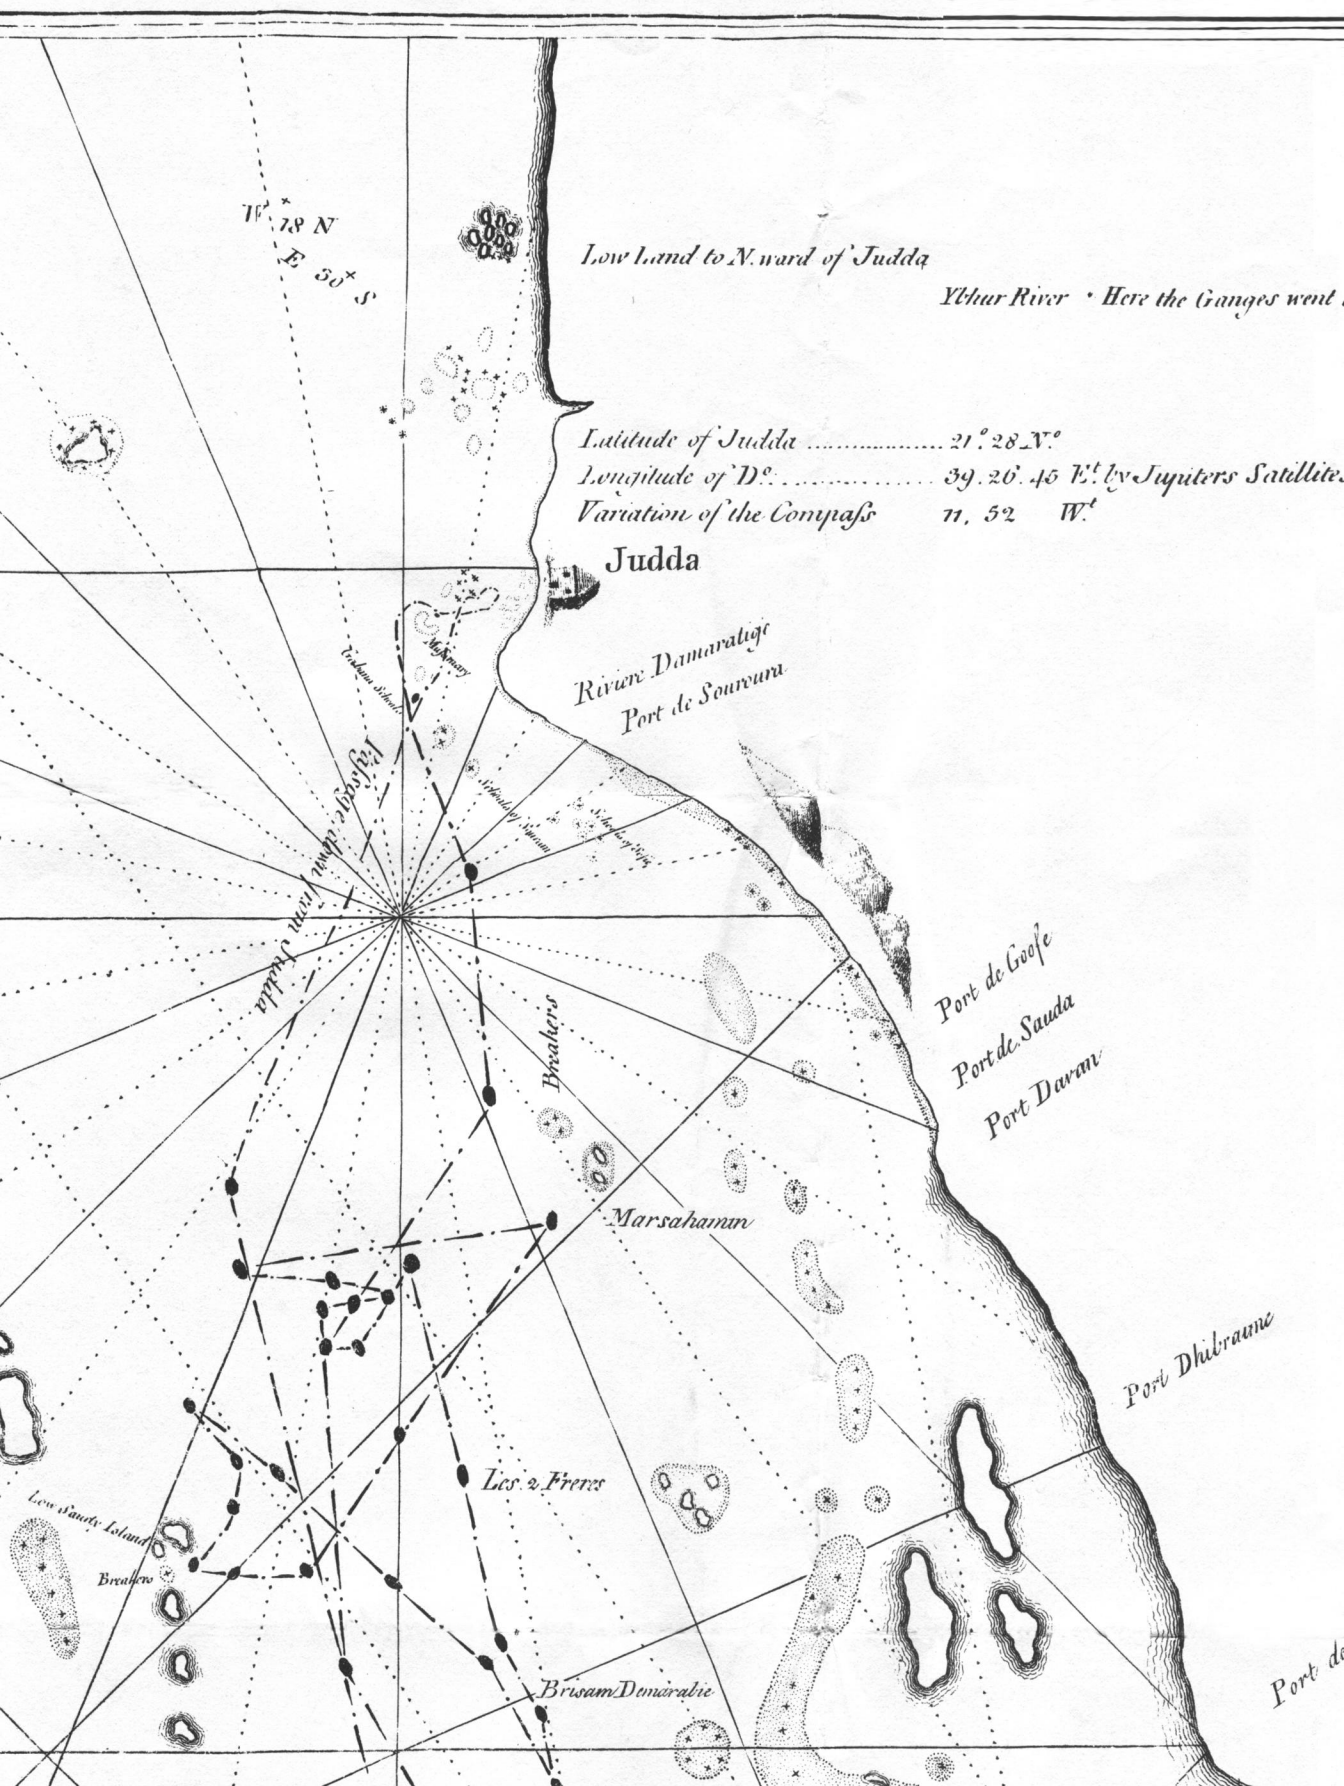 W. 18 N
E 30 S
Low Land to N.ward of Judda
Ybhur River · Here the Ganges went
Latitude of Judda .................... 21°. 28 N.°
Longitude of D.° .................. 39. 26. 45 E.t by Jupiters Satillites
Variation of the Compass 11, 52 W.t
Judda
Riviere Damaratige
Port de Souroura
Passage down from Judda
Breakers
Port de Goose
Port de Sauda
Port Davan
Marsahamm
Port Dhibraume
Les 2 Freres
Low Sandy Island
Breakers
Brisam Demarabie
Port de